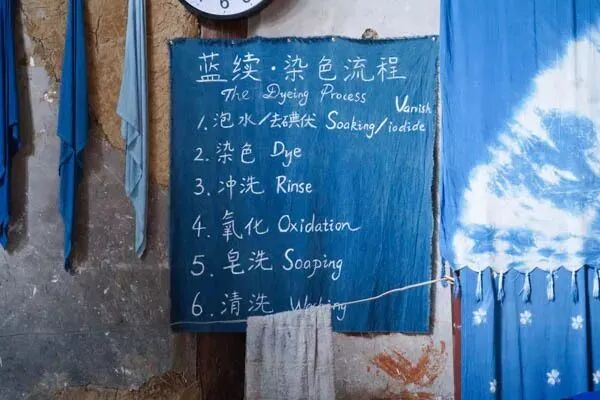 蓝续·染色流程
The Dyeing Process
Vanish
1. 泡水/去碘伏 Soaking/iodide
2. 染色 Dye
3. 冲洗 Rinse
4. 氧化 Oxidation
5. 皂洗 Soaping
6. 清洗 Washing
6